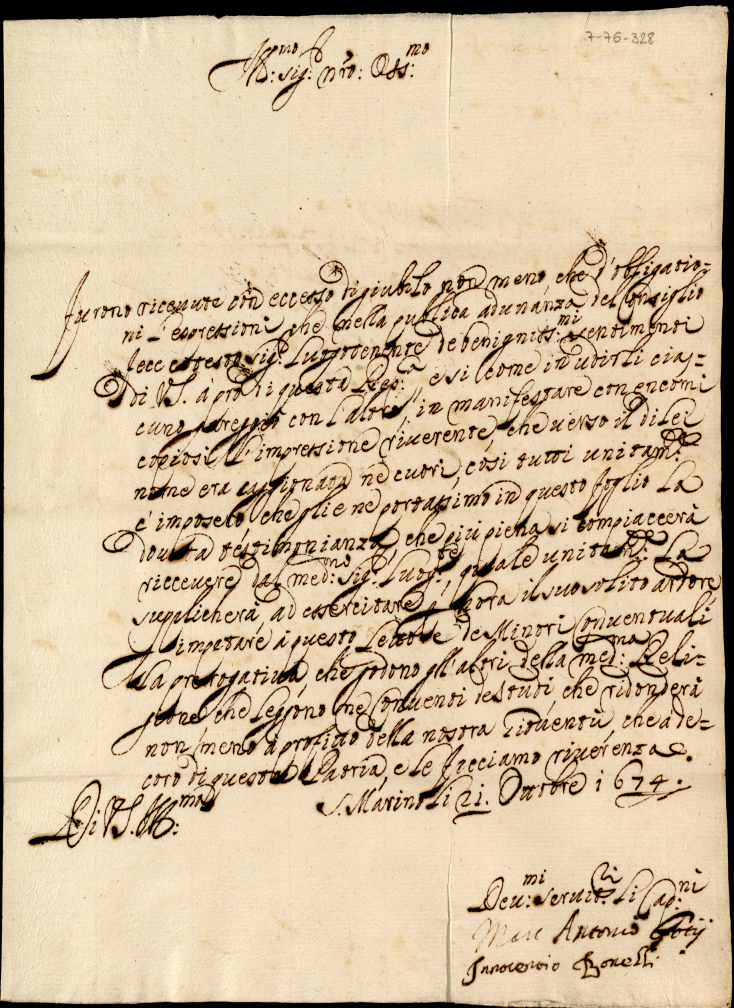 7-76-328
Ill:mo sig: nro: Oss:mo
Furono ricevute con eccesso di giubilo non meno, che d'obligatio=
ni l'espressioni, che nella publica adunanza del Consiglio
fece cotesto sig: Luogotenente de benigniss:mi sentimenti
di V.S. à prò di questa Rep:ca e si come in udirli cias=
cuno gareggiò con l'altro in manifestare con encomi
copiosi l'impressione riverente, che verso il di lei
nome era cagionata ne cuori, così tutti unitam:te
c'imposero che glie ne portassimo in questo foglio la
dovuta testimonianza, che più piena si compiacerà
riccevere dal med:mo sig: Luog:te, quale unitam:te La
supplicherà, ad essercitare p hora il suo solito ardore
impetrare à questo Lettore de Minori Conventuali
la prerogativa, che godono gl'altri della med:ma Reli=
gione che leggono ne Conventi de studi che ridonderà
non meno à profitto della nostra Gioventù che à de=
coro di questa Patria, e le facciamo riverenza
S. Marino li 21. Ottobre 1674.
Di V.S. Ill:ma
Dev:mi servit:ri li Cap:ni
Marc Antonio
Innocentio Bonelli